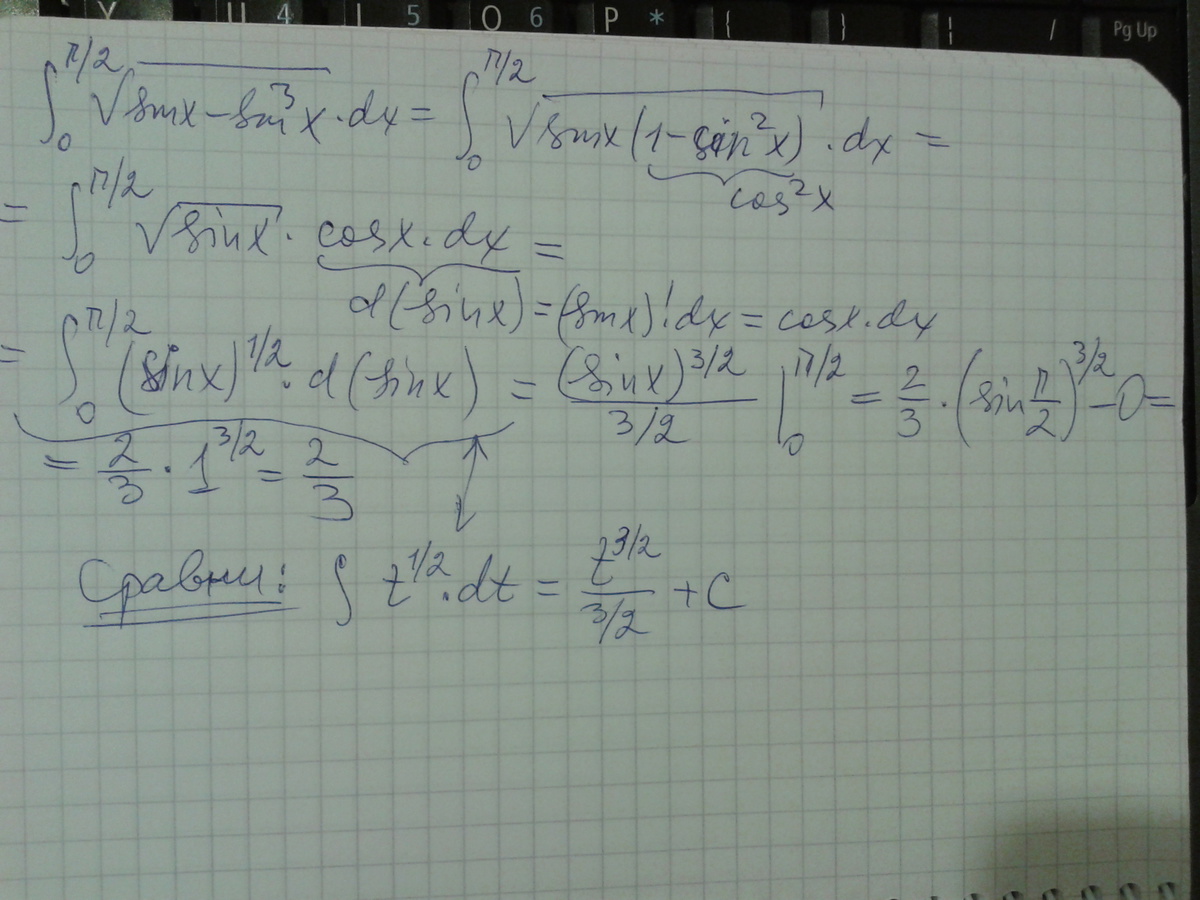 Y U 4 I 5 O 6 P * { } ¦ / Pg Up
∫₀^(π/2) √(sinx − sin³x) · dx = ∫₀^(π/2) √(sinx(1 − sin²x)) · dx =
cos²x
= ∫₀^(π/2) √(sinx) · cosx · dx =
d(sinx) = (sinx)' · dx = cosx · dx
= ∫₀^(π/2) (sinx)^(1/2) · d(sinx) = (sinx)^(3/2) / (3/2) |₀^(π/2) = 2/3 · (sin π/2)^(3/2) − 0 =
= 2/3 · 1^(3/2) = 2/3
Сравни: ∫ t^(1/2) · dt = t^(3/2) / (3/2) + C